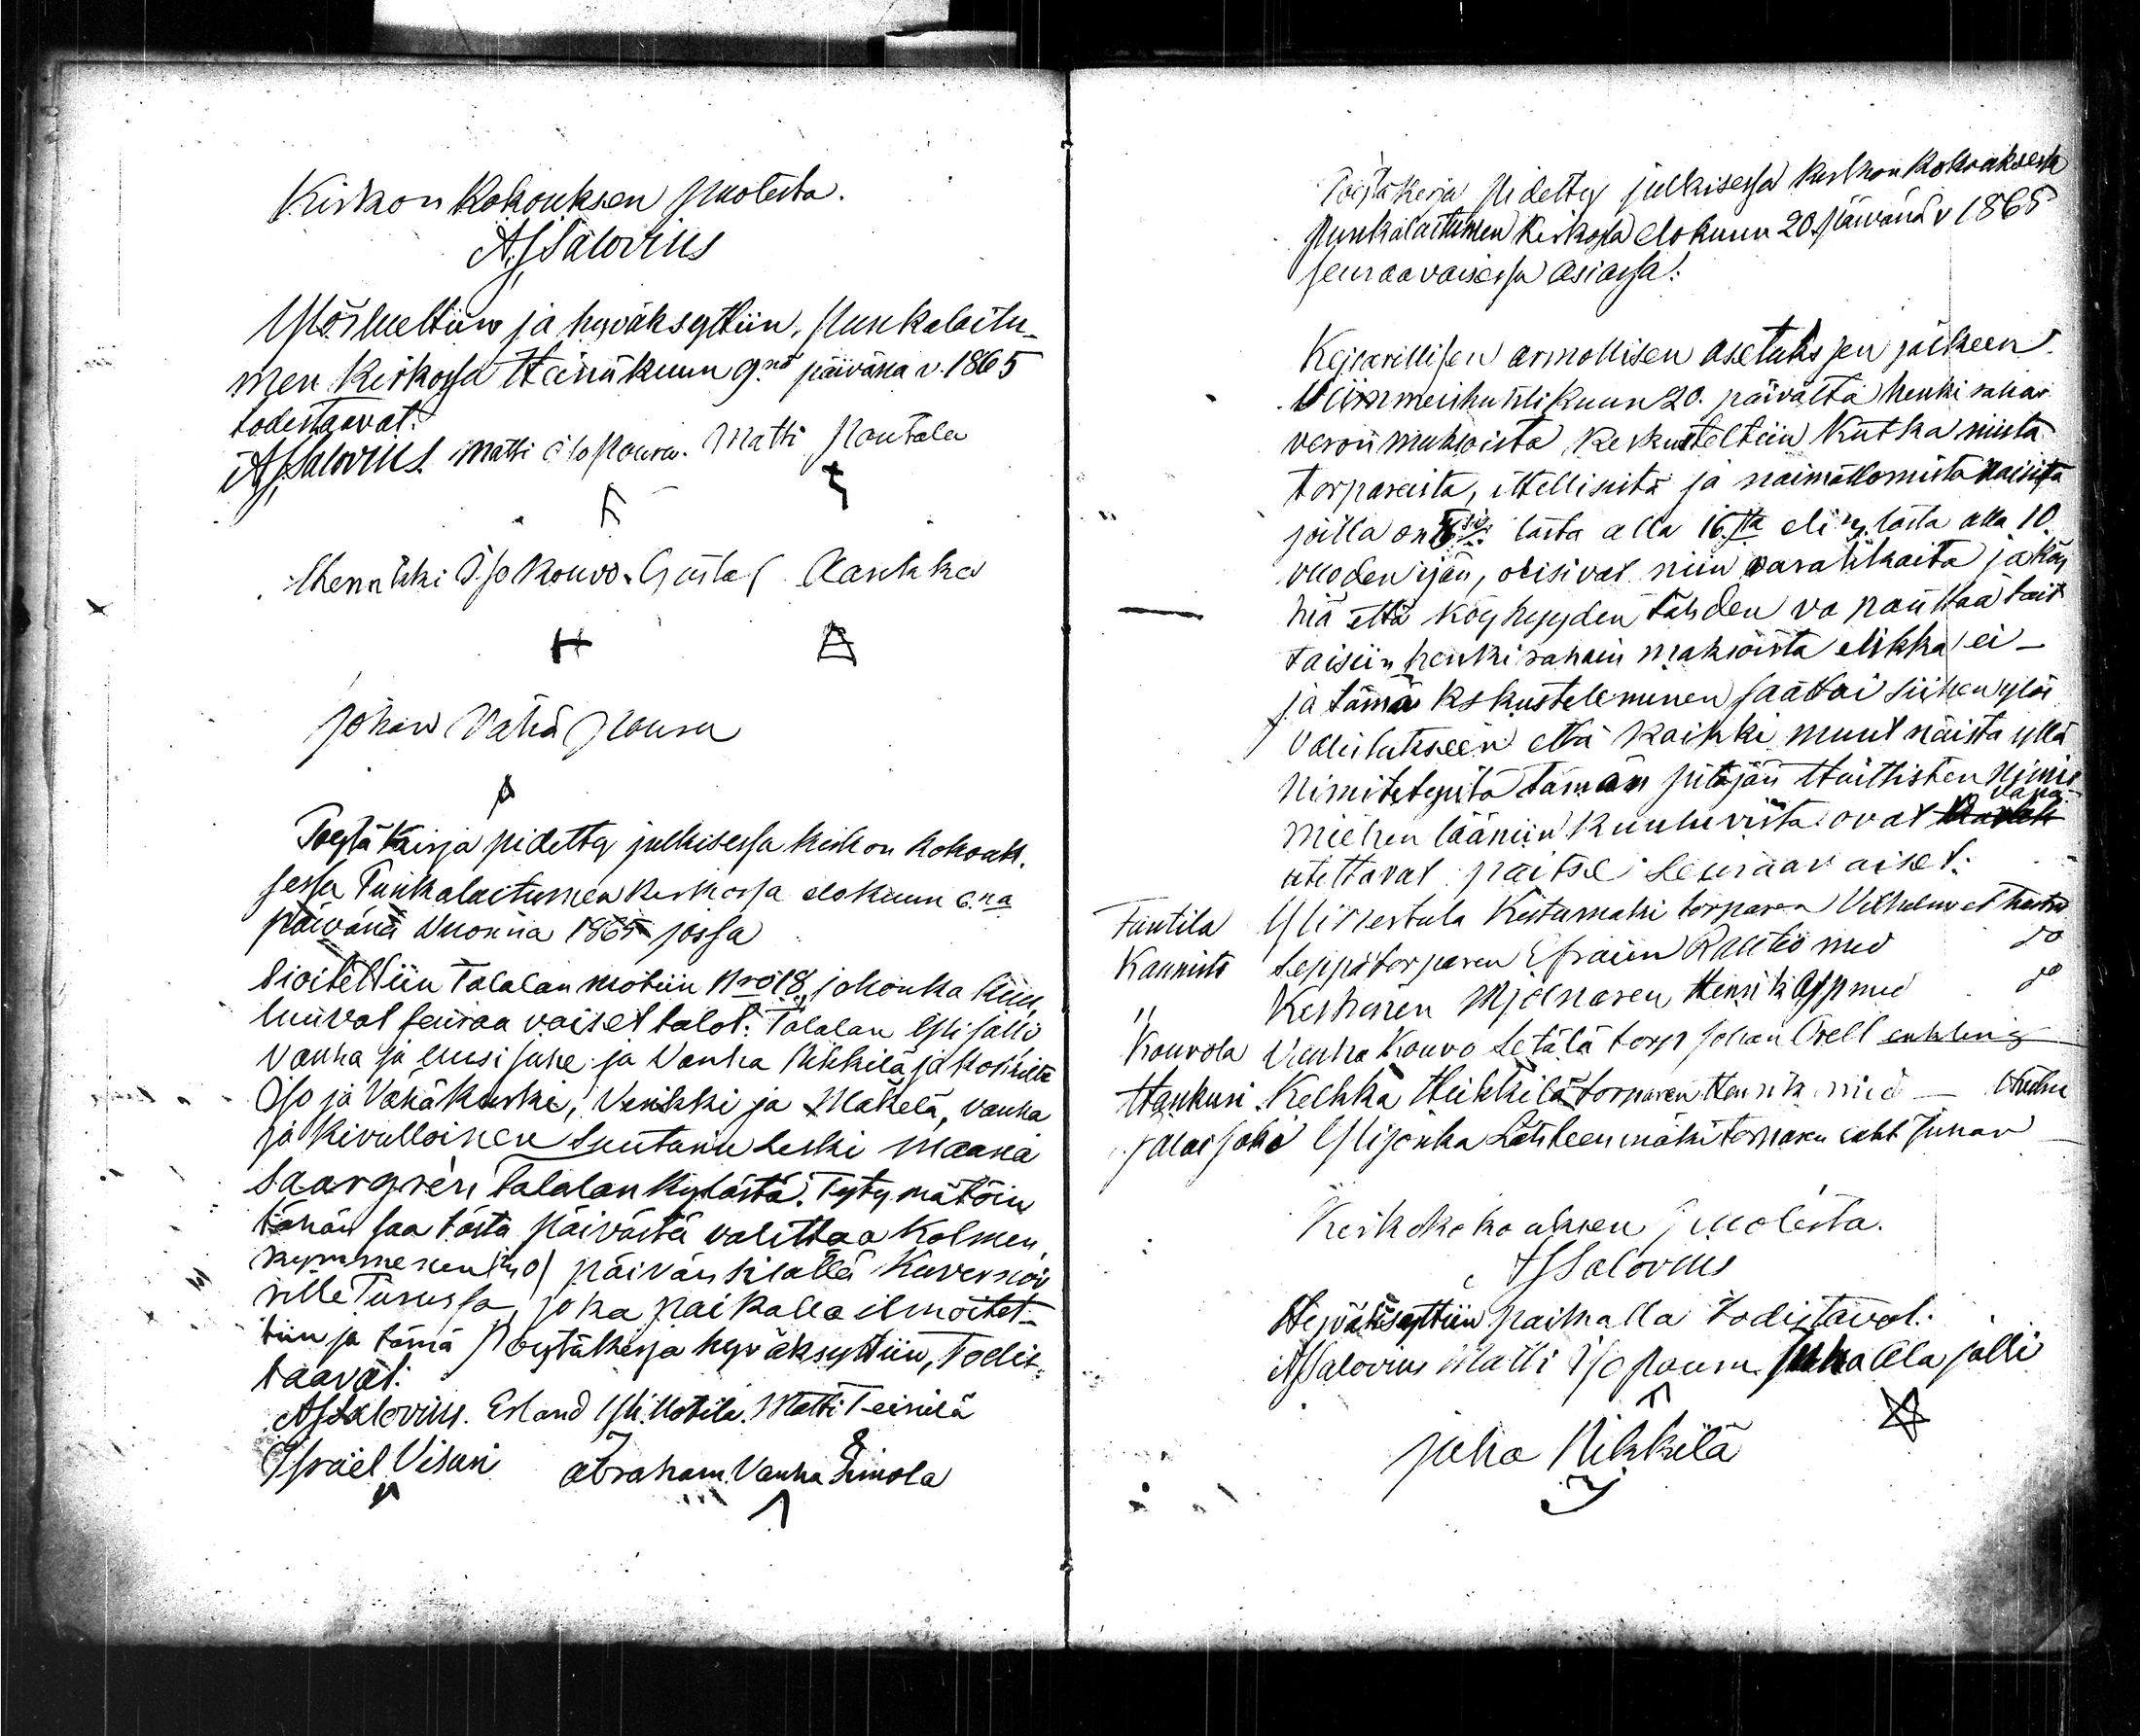 Kirkon Kokouksen puolesta.
A J Salovius
Ylösluettiin ja hyväksyttiin, Punkalaitu-
men Kirkossa Heinäkuun 9.nä päivänä v. 1865
todistaavat:
A J Salovius. Matti Iso Pouru. Matti Poutala
Hennikki Iso Kouvo. Gustaf Aankka
Johan Vähä Pouru
Poytäkirja pidetty julkisessa kirkon kokouk-
sessa Punkalaitumen Kirkossa elokuun 6.na
päivänä Vuonna 1865 jossa
sioitettiin Talalan rotiin Nro 18, johonka kuu-
luuvat seuraavaiset talot: Talalan Yli jalli
Vanha ja Uusi Juhe ja Vanha Nikkilä ja
Iso ja Vähä Kurki, Venikki ja Mäkelä, vanha
ja kivulloinen Suutarin Leski Maaria
Saargren Talalan Kylästä. Tytymätöin
tähän saa tästä päivästä valittaa Kolmen-
kymmenen (30) päivän sisällä Kuvernöö-
rille Turussa, joka paikalla ilmoitet-
tiin ja tämä Poytäkirja hyväksyttiin, Todis-
taavat:
A J Salovius. Erland Yli Kotila. Matti Teinilä
Israel Visuri Abraham Vanha Simola
Poytäkirja Pidetty julkisessa kirkon kokouksessa
Punkalaitumen Kirkossa elokuun 20. päivänä v 1865
seuraavaisessa asiassa:
Keisarillisen armollisen asetuksen jälkeen
viimmeis huhtikuun 20. päivältä henki rahan
veron maksoista, keskusteltiin Kutka niistä
torpareista, ittellisistä ja naimattomista naisista
joilla on lasta alla 16.sta eli lasta alla 10
vuoden ijän, olisivat niin varattikaita ja köy
hiä että köyhyyden tähden va pauttaa tait
taisiin henki rahain maksoista elikka ei –
ja tämä keskusteleminen päättai siihen ylös
valistukseen että kaikki muut näistä yllä
Nimitetyistä tämän pitäjän Huittisten Nimis
vapa
miehen lääniin kuuluvista ovat
utettavat paitse seuraavaiset:
Kannisto Seppä torparen Efraim Rautio med do
" Keskinen Mjölnaren Henrik med do
Kouvola Vanha Kouvo Setälä torp Johan Orell enkling
Hankuri Kelkka Heikkilä torparen Henrik med — Hustru
Palojoki Ylijonka Lähteenmäki torparen Juhan —
Kirkokokouksen puolesta.
A J Salovius
Hyväksyttiin paikalla todistavat:
A J Salovius Matti Iso Pouru. Juha Ala jalli
Juha Nikkilä